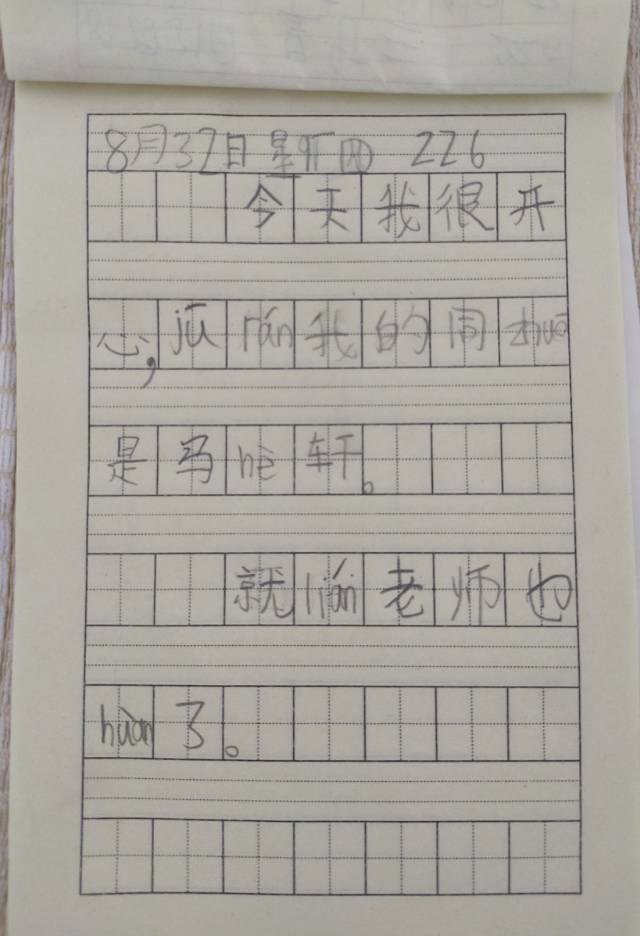 8月32日星期四 226
今天我很开
心,jū rán我的同桌
是马hè轩。
就lián老师也
huàn了。